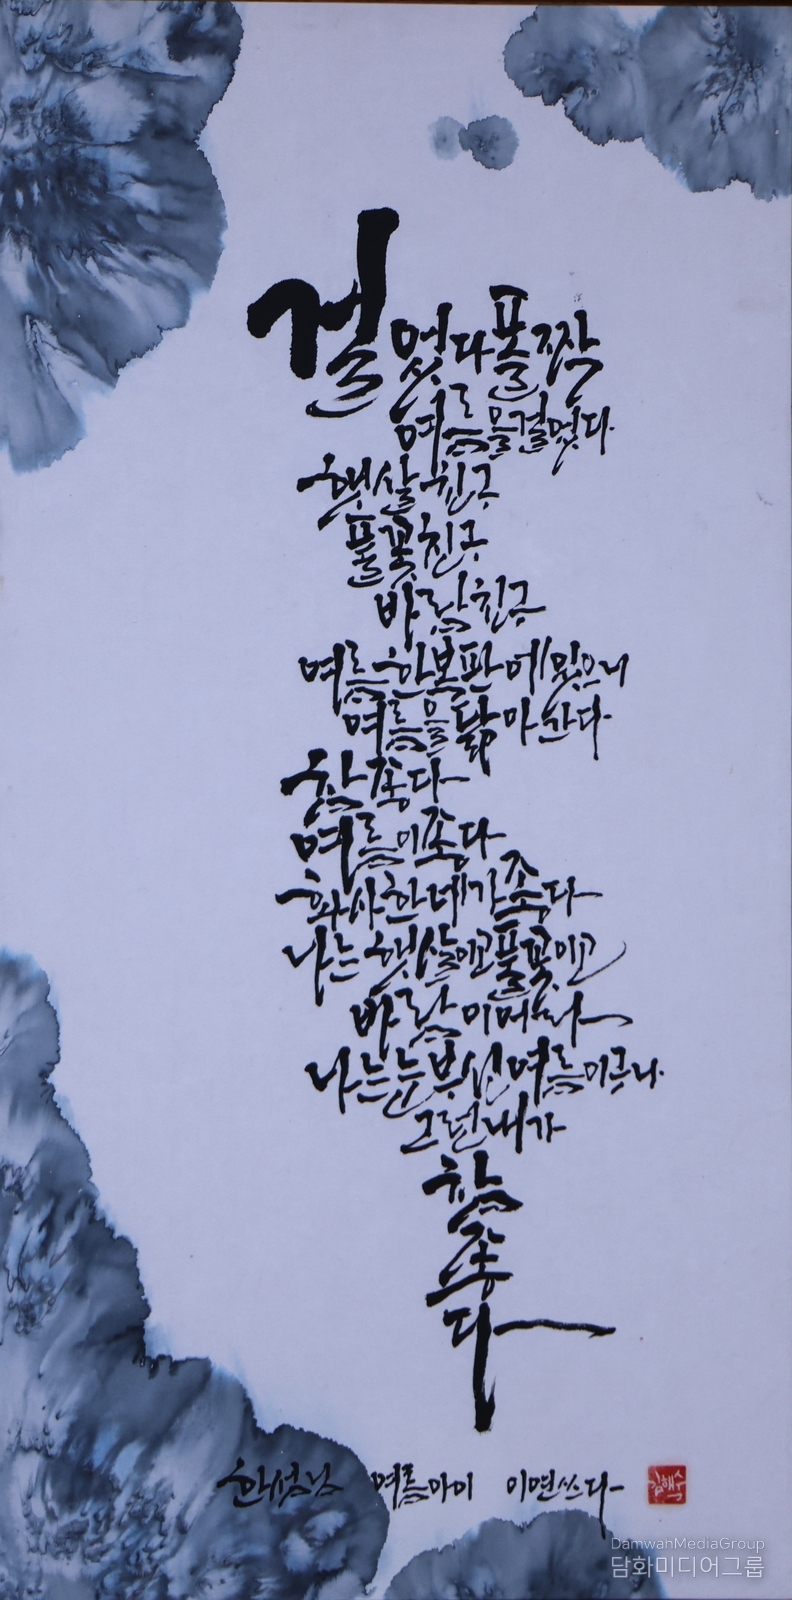 걸었다 폴짝
여름을 걸었다
햇살 친구
풀꽃 친구
바람 친구
여름 한복판에 있으니
여름을 닮아 간다
참 좋다
여름이 좋다
화사한 네가 좋다
나는 햇살이고 풀꽃이고
바람이려니
나는 눈부신 여름이구나
그런 내가
참
좋
다
한성님 여름아이 이연쓰다
김해수
DamwahMediaGroup
담화미디어그룹